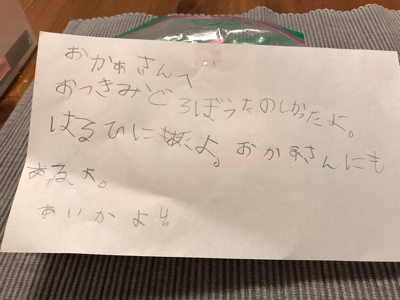 おかあさんへ
おつきみどろぼうたのしかったよ。
はるひにあったよ。おかあさんにも
あるよ。
あいかより